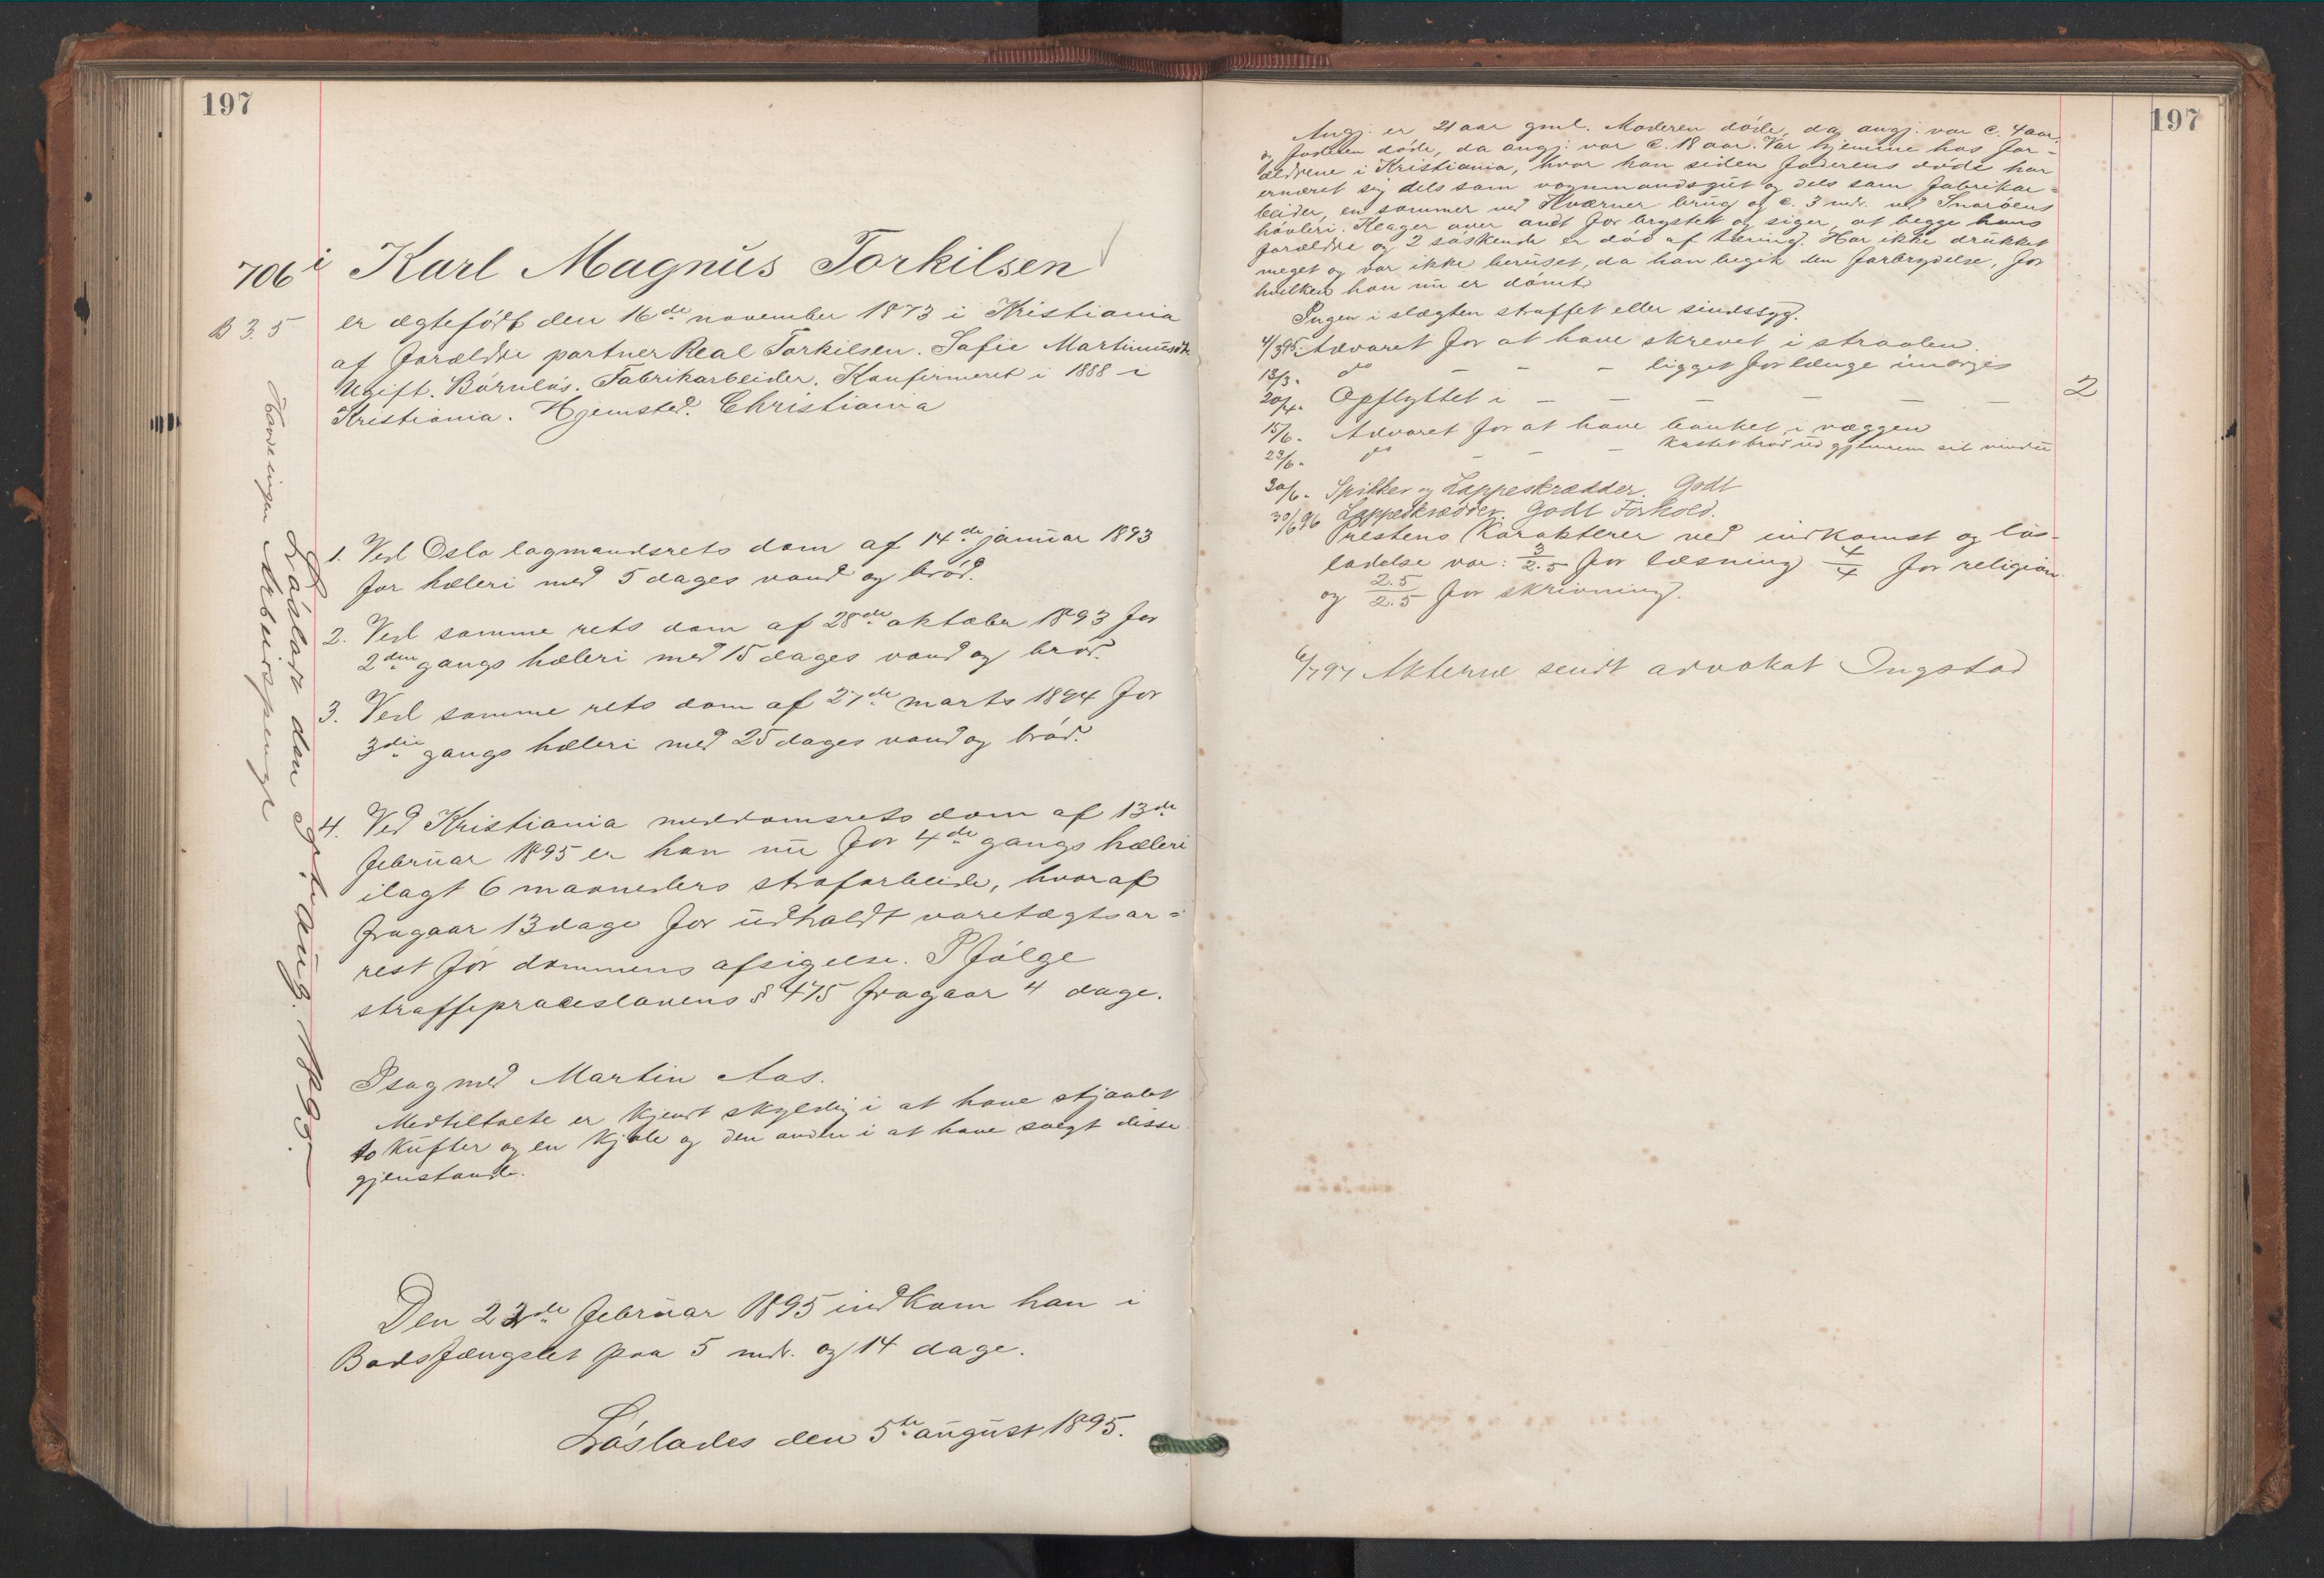 197
706 i Karl Magnus Torkilsen
B 3.5
er ægtefödt den 16de november 1873 i Kristiania
af forældre portner Real Torkilsen. Sofie Martinusdtr
Ugift. Börnlös. Fabrikarbeider. Konfirmeret i 1888 i
Kristiania. Hjemsted. Christiania
1. Ved Oslo lagmandsrets dom af 14de januar 1893
for hæleri med 5 dages vand og bröd.
2. Ved samme rets dom af 28de oktober 1893 for
2den gangs hæleri med 15 dages vand og bröd.
3. Ved samme rets dom af 27de marts 1894 for
3die gangs hæleri med 25 dages vand og bröd.
4. Ved Kristiania meddomsrets dom af 13de
februar 1895 er han nu for 4de gangs hæleri
ilagt 6 maaneders strafarbeide, hvoraf
fragaar 13 dage for udholdt varetægtsar=
rest för dommens afsigelse. Ifölge
straffeproceslovens § 475 fragaar 4 dage.
I sag med Martin Aas.
Medtiltalte er kjendt skyldig i at have stjaalet
to kufter og en kjole og den anden i at have solgt disse
gjenstande.
Den 22de februar 1895 indkom han i
Bodsfængslet paa 5 mdr. og 14 dage.
Löslades den 5te august 1895.
Lösladt den 5te aug. 1895.
Arbeidspenge
197
Angj. er 21 aar gml. Moderen döde, da angj. var c. 4 aar,
og faderen döde, da angj. var c. 18 aar. Var hjemme hos for-
ældrene i Kristiania, hvor han siden faderens död har
ernæret sig dels som vognmandsgut og dels som fabrikar=
beider, en sommer ved Kværner brug og c. 3 mdr. ved Snaröens
hövleri. Klager over ondt for brystet og siger, at begge hans
forældre og 2 söskende er död af tæring. Har ikke drukket
meget og var ikke beruset, da han begik den forbrydelse, for
hvilken han nu er dömt.
Ingen i slægten straffet eller sindssyg.
4/3 95. Advaret for at have skrevet i straalen
13/3. do – – – ligget for længe imorges
20/4. Opflyttet i – – – – – – 2
15/6. Advaret for at have banket i væggen
23/6. do – – – kastet bröd ud gjennem sit vindu
30/6. Spikker og Lappeskrædder. Godt
30/6 96 Lappeskrædder. Godt Forhold.
Prestens karakterer ved indkomst og lös-
ladelse var: 3/2.5 for læsning 4/4 for religion
og 2.5/2.5 for skrivning.
6/7 97 Akterne sendt advokat Ingstad